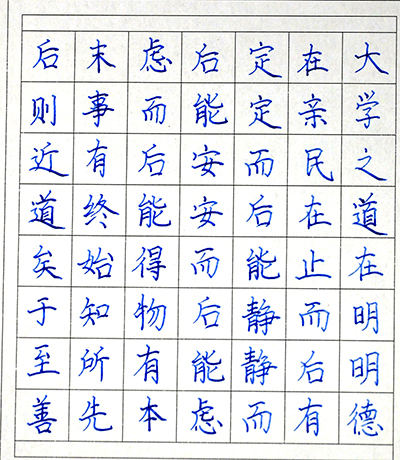 大学之道在明明德
在亲民在止而后有
定定而后能静静而
后能安安而后能虑
虑而后能得物有本
末事有终始知所先
后则近道矣于至善